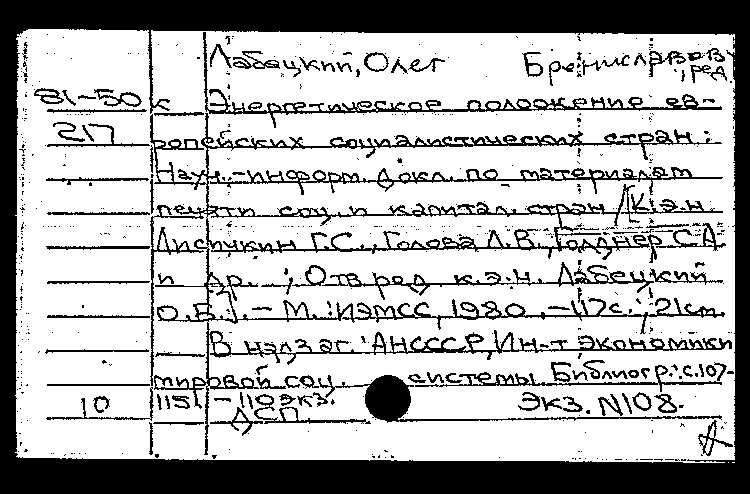 Лабецкий, Олег Брониславов., ред.
81-50к Энергетическое положение ев-
217 ропейских социалистических стран:
Науч.-информ. докл. по материалам
печати соц. и капитал. стран / [К.э.н.
Лисичкин Г.С., Голова Л.В., Голднер С.А.
и др.; Отв. ред. к.э.н. Лабецкий
О.Б.]. - М.: ИЭМСС, 1980. - 117с.; 21см.
В надзаг.: АН СССР, Ин-т экономики
мировой соц. системы. Библиогр.: с.107-
10 115. - 110 экз. Экз. N108.
ДСП